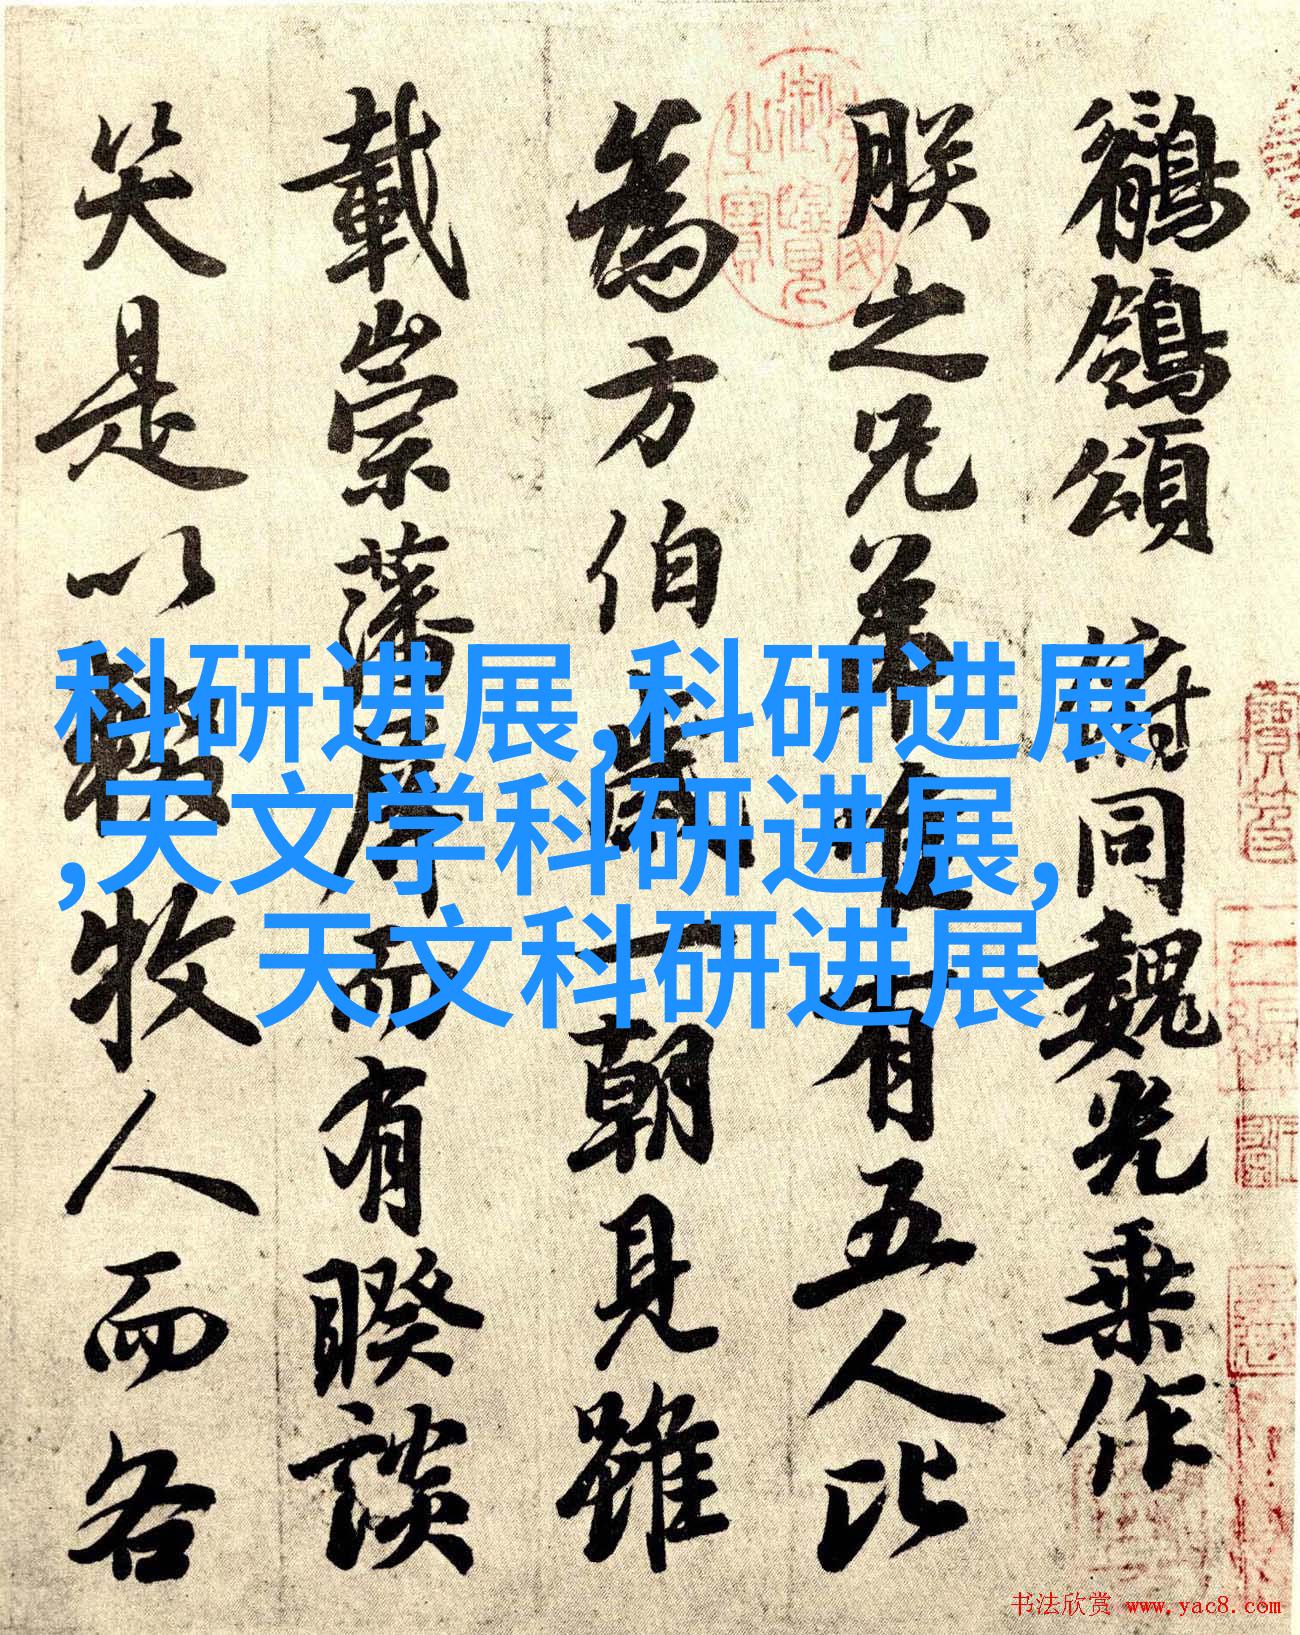 鶺鴒頌 俯同魏光乗作
朕之兄弟唯有五人比
為方伯歲一朝見雖
載崇藩屏而有睽談
笑是以輟牧人而各
科研进展,科研进展
,天文学科研进展,
天文科研进展
书法欣赏 www.yac8.com